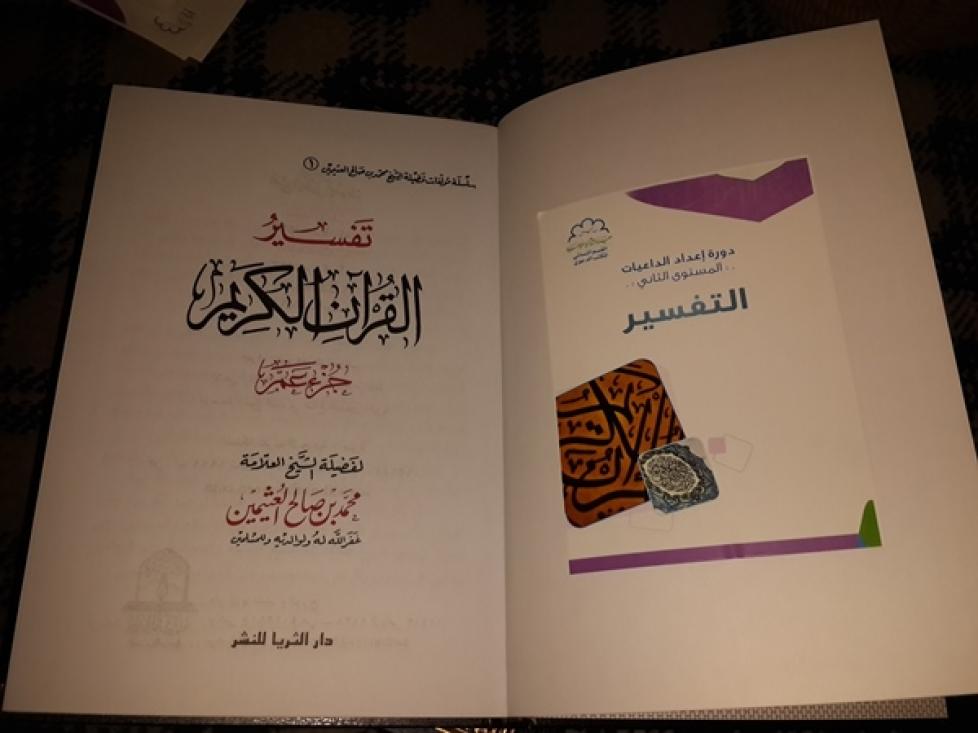 دورة إعداد الداعيات
.: المستوى الثاني :.
التفسير
سلسلة مؤلفات فضيلة الشيخ محمد بن صالح العثيمين ١
تفسير
القرآن الكريم
جزء عم
لفضيلة الشيخ العلامة
محمد بن صالح العثيمين
غفر الله له ولوالديه وللمسلمين
دار الثريا للنشر